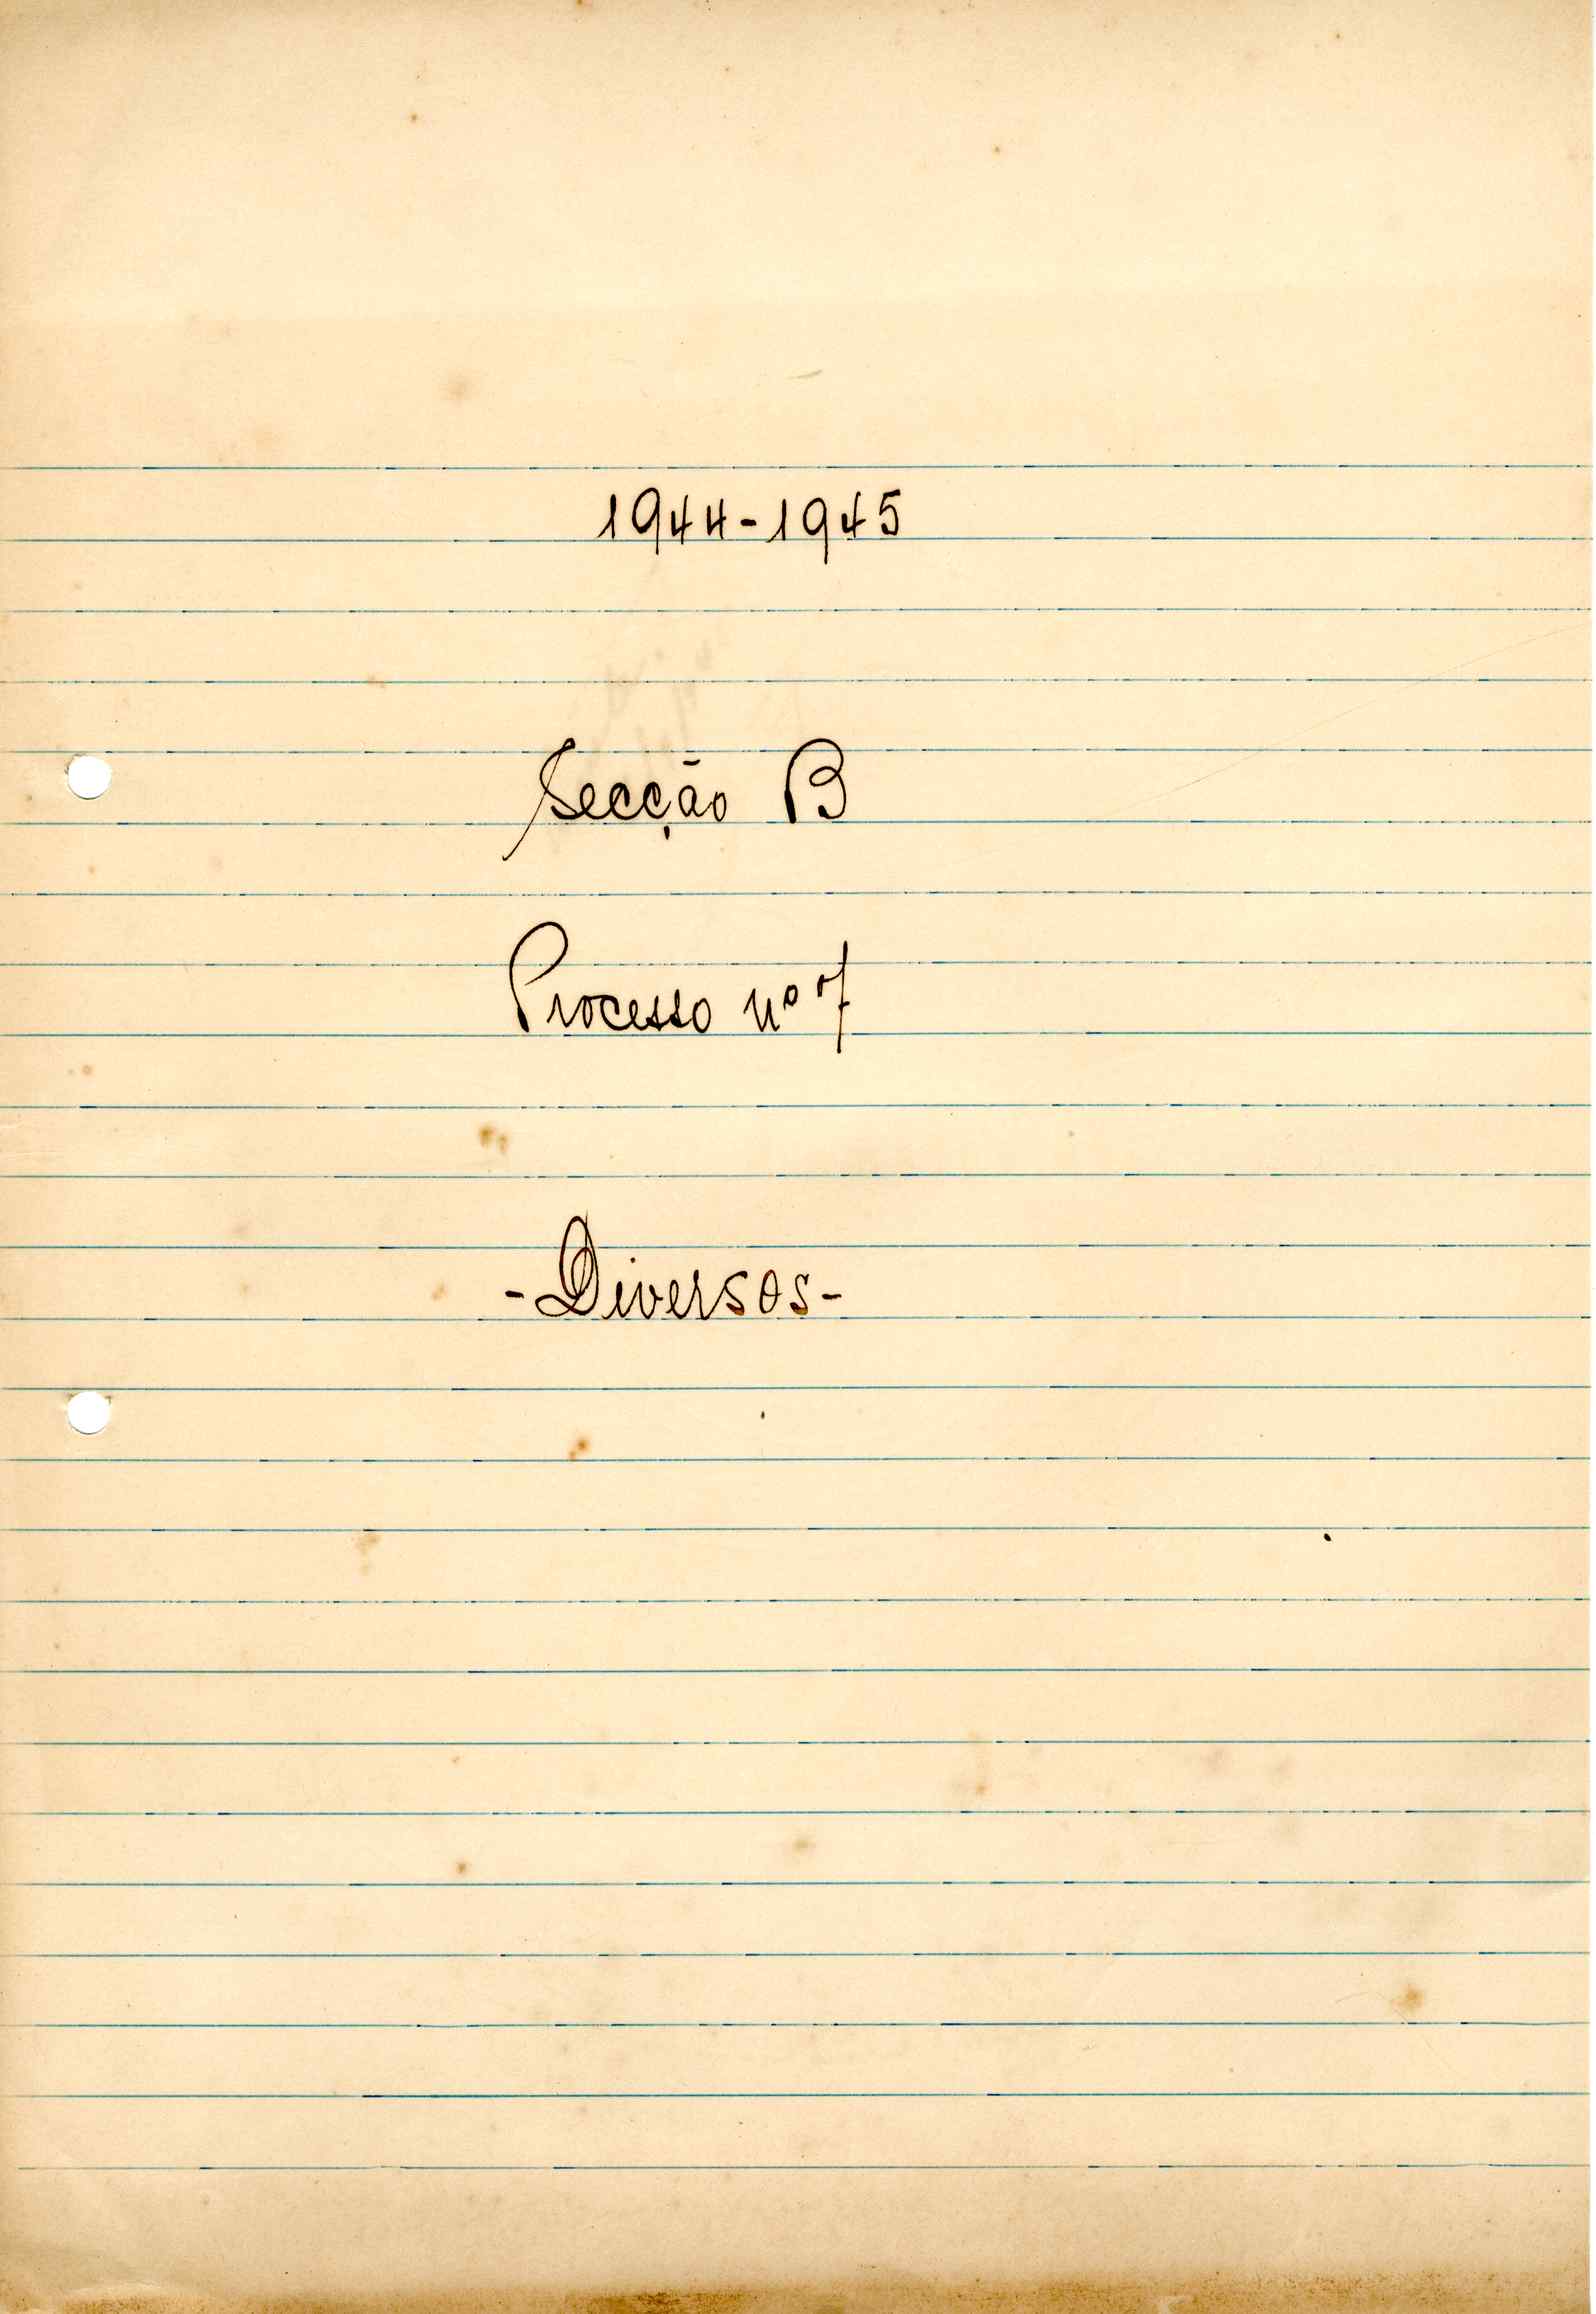 1944-1945
Secção B
Processo nº 7
-Diversos-